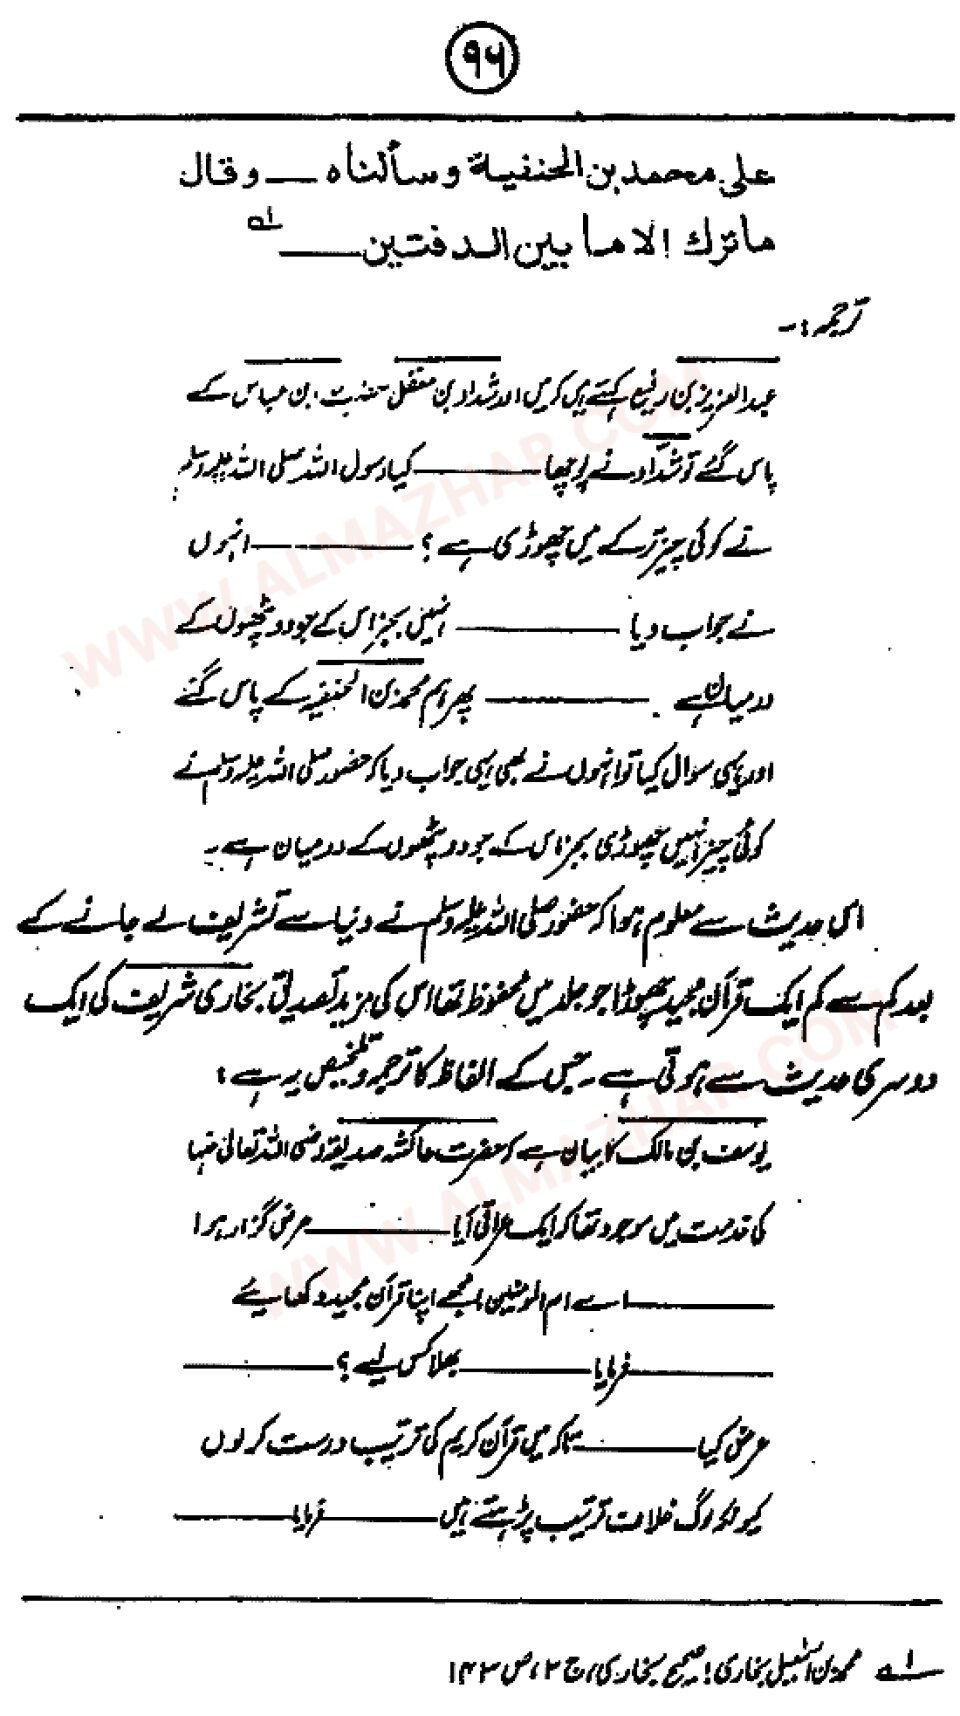 ۹۶
على محمد بن الحنفية و سألناه ــ وقال
ماترك الا ما بين الدفتين ــــ لہ
ترجمہ :-
عبدالعزیز بن رفیع کہتے ہیں کہ میں اور شداد بن معقل حضرت بن عباس کے
پاس گئے تو شداد نے پوچھا ــــــ کیا رسول اللہ صلی اللہ علیہ وسلم
نے کوئی چیز ترکے میں چھوڑی ہے ؟ ــــــ انہوں
نے جواب دیا ــــــ نہیں بجز اس کے جو دو پٹھوں کے
درمیان ہے ۔ ــــــ پھر ہم محمد بن الحنفیہ کے پاس گئے
اور یہی سوال کیا تو انہوں نے بھی یہی جواب دیا کہ حضور صلی اللہ علیہ وسلم نے
کوئی چیز نہیں چھوڑی بجز اس کے جو دو پٹھوں کے درمیان ہے ۔
اس حدیث سے معلوم ہوا کہ حضور صلی اللہ علیہ وسلم نے دنیا سے تشریف لے جانے کے
بعد کم سے کم ایک قرآن مجید چھوڑا جو جلد میں محفوظ تھا اس کی مزید تصدیق بخاری شریف کی ایک
دوسری حدیث سے ہوتی ہے ۔ جس کے الفاظ کا ترجمہ و تلخیص یہ ہے :
یوسف بن مالک کا بیان ہے کہ حضرت عائشہ صدیقہ رضی اللہ تعالیٰ عنہا
کی خدمت میں موجود تھا کہ ایک عراقی آیا ــــــ عرض گزار ہوا
ــــــ اے ام المومنین ! مجھے اپنا قرآن مجید دکھائیے
ــــــ فرمایا ــــــ بھلا کس لیے ؟ ــــــ
عرض کیا ــــــ تاکہ میں قرآن کریم کی ترتیب درست کرلوں
کیونکہ لوگ خلاف ترتیب پڑھتے ہیں ــــــ فرمایا ــــــ
لہ محمد بن اسمٰعیل بخاری : صحیح بخاری ، ج ۲ ، ص ۱۴۲
WWW.ALMAZHAR.COM
WWW.ALMAZHAR.COM